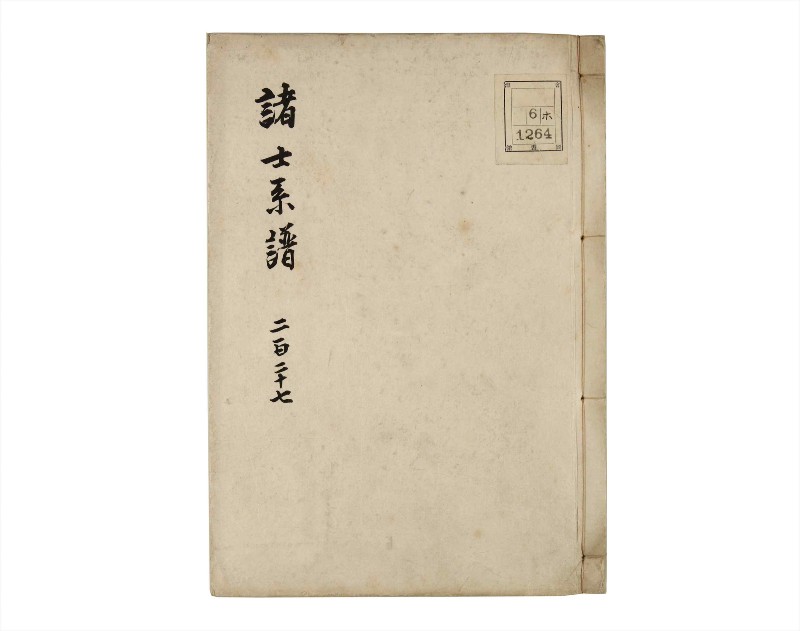 諸士系譜 二百二十七
6 ホ
1264